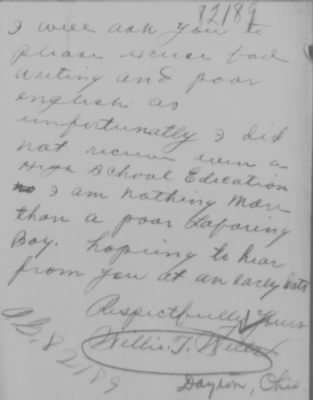 82189
I will ask you to
please excuse bad
writing and poor
english as
unfortunatly I did
not receive even a
High School Edication
I am nothing more
than a poor Laboring
Boy. hopeing to hear
from you at an early date
Respectfully Yours
Willie. T.
Dayton, Ohio
82189